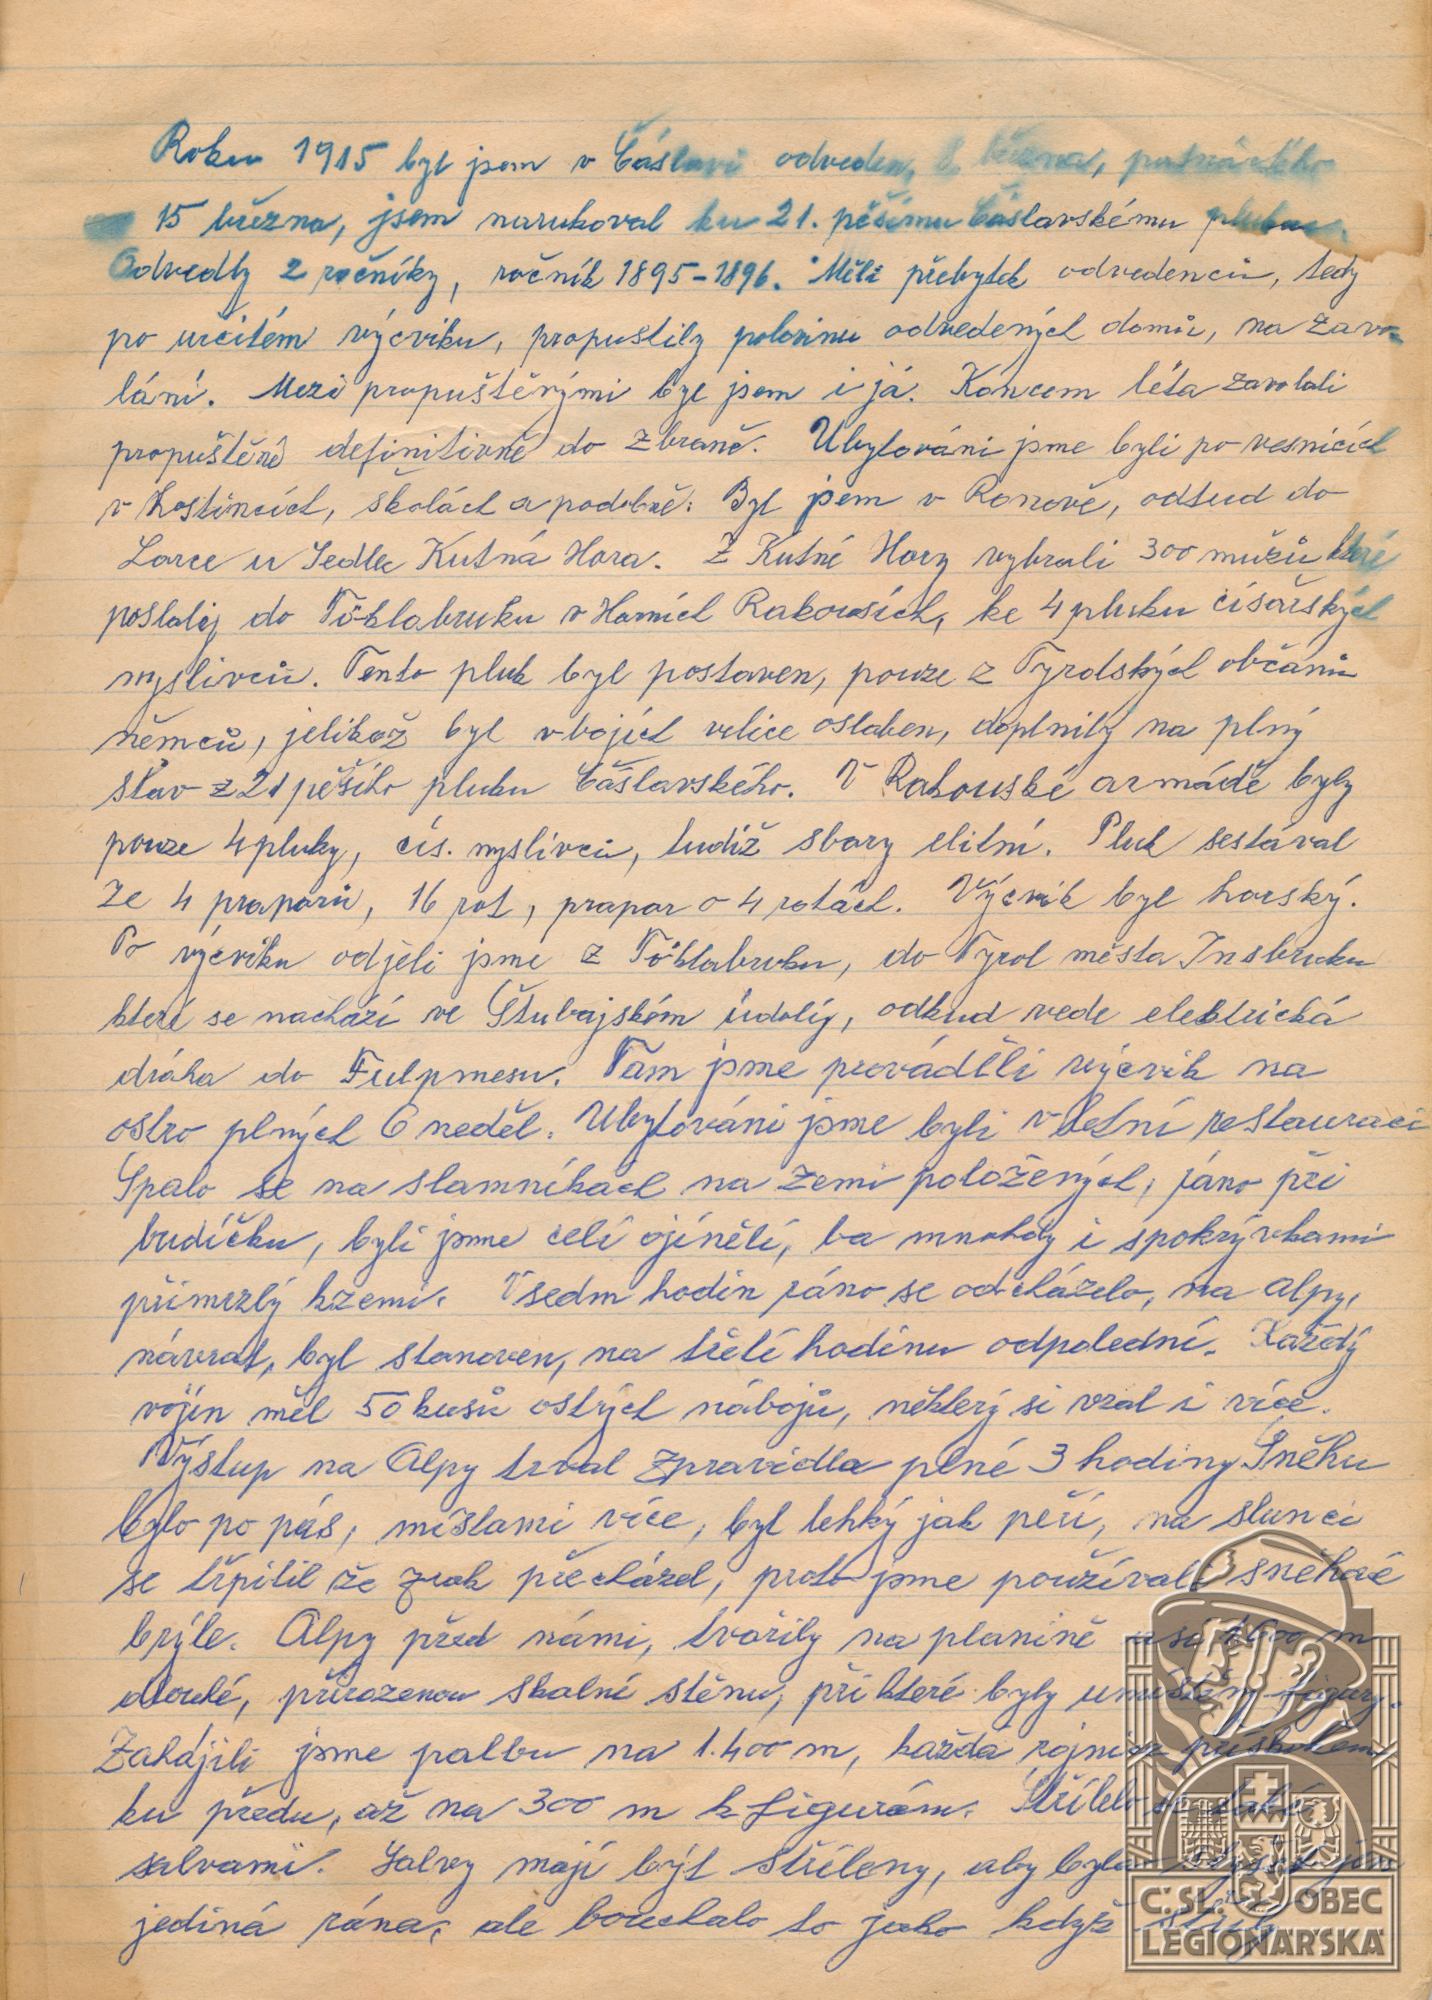 Roku 1915 byl jsem v Čáslavi odveden, 8 března, patnáctého
15 března, jsem narukoval ku 21. pěšímu Čáslavskému pluku.
Odvedly 2 ročníky, ročník 1895-1896. Měli přebytek odvedenců, tedy
po určitém výcviku, propustily polovinu odvedených domů, na zavo-
lání. Mezi propuštěnými byl jsem i já. Koncem léta zavolali
propuštěné definitivně do zbraně. Ubytováni jsme byli po vesnicích
v hostincích, školách a podobně. Byl jsem v Ronově, odtud do
Lorce u Sedlce Kutná Hora. Z Kutné Hory vybrali 300 mužů které
poslali do Föklabruku v Horních Rakousích, ke 4 pluku císařských
myslivců. Tento pluk byl postaven, pouze z Tyrolských občanů
němců, jelikož byl v bojích velice oslaben, doplnily na plný
stav z 21 pěšího pluku Čáslavského. V Rakouské armádě byly
pouze 4 pluky, cís. myslivců, tudíž sbory elitní. Pluk sestával
ze 4 praporů, 16 rot, prapor o 4 rotách. Výcvik byl horský.
Po výcviku odjeli jsme z Föklabruku, do Tyrol města Insbruku
které se nachází ve Štubajském údolý, odkud vede elektrická
dráha do Fulpmesu. Tam jsme prováděli výcvik na
ostro plných 6 neděl. Ubytováni jsme byli v letní restauraci
Spalo se na slamníkách na zemi položených, ráno při
budíčku, byli jsme celí ojínělí, ba mnohdy i s pokrývkami
přimrzlý k zemi. V sedm hodin ráno se odcházelo, na Alpy,
návrat, byl stanoven, na třetí hodinu odpolední. Každý
vojín měl 50 kusů ostrých nábojů, některý si vzal i více.
Výstup na Alpy trval zpravidla plné 3 hodiny Sněhu
bylo po pás, místami více, byl lehký jak peří, na slunci
se třpitil že zrak přecházel, proto jsme používali sněhové
brýle. Alpy před námi, tvořily na planině asi 1600 m
dlouhé, přirozenou skalní stěnu, při které byly umístěny figury.
Zahájili jsme palbu na 1.400 m, každá rojnice přískokem
ku předu, až na 300 m k figurám. Střílelo se také
salvami. Salvy mají být stříleny, aby byla slyšet jen
jediná rána, ale bouchalo to jako když
Č. SL. OBEC
LEGIONÁŘSKÁ